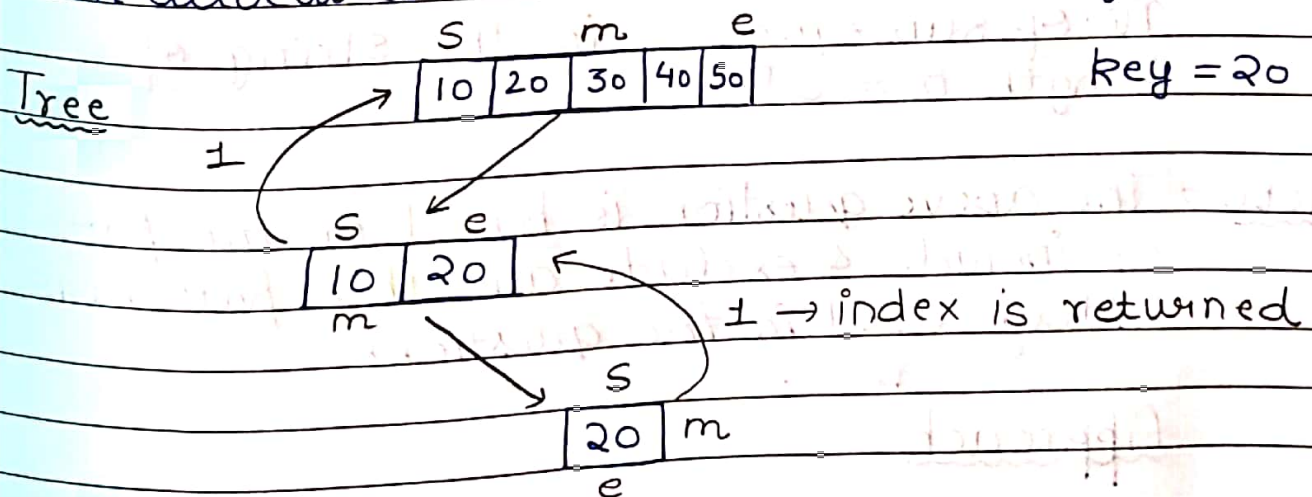 s m e
Tree
10 20 30 40 50
key = 20
1
s e
10 20
m
1 → index is returned
s
20 m
e